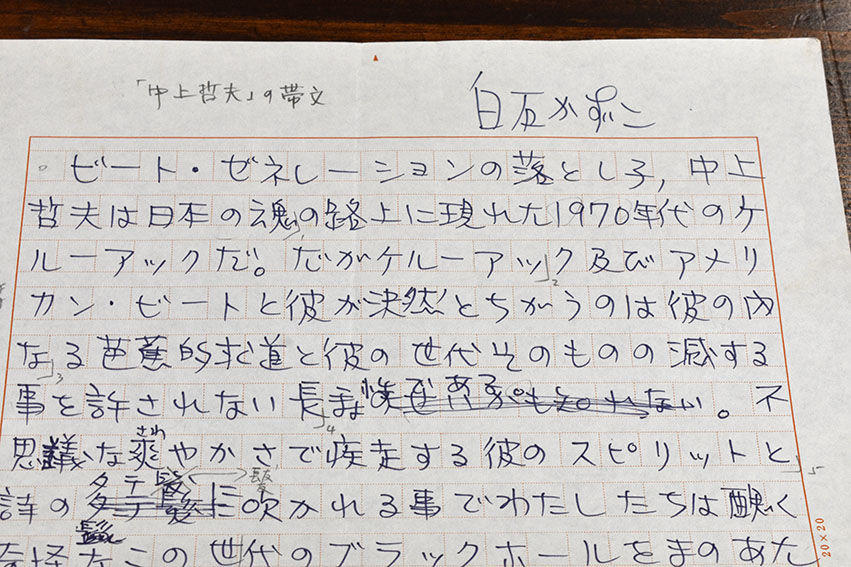 「中上哲夫」の帯文
白石かずこ
ビート・ゼネレーションの落とし子，中上
哲夫は日本の魂の路上に現れた1970年代のケ
ルーアックだ。だがケルーアック及びアメリ
カン・ビートと彼が決然とちがうのは彼の内
なる芭蕉的求道と彼の世代そのものの滅する
事を許されない
不
思議な爽やかさで疾走する彼のスピリットと
さわ
詩のタテ髪に吹かれる事でわたしたちは醜く
奇怪なこの世代のブラックホールをまのあた
20×20